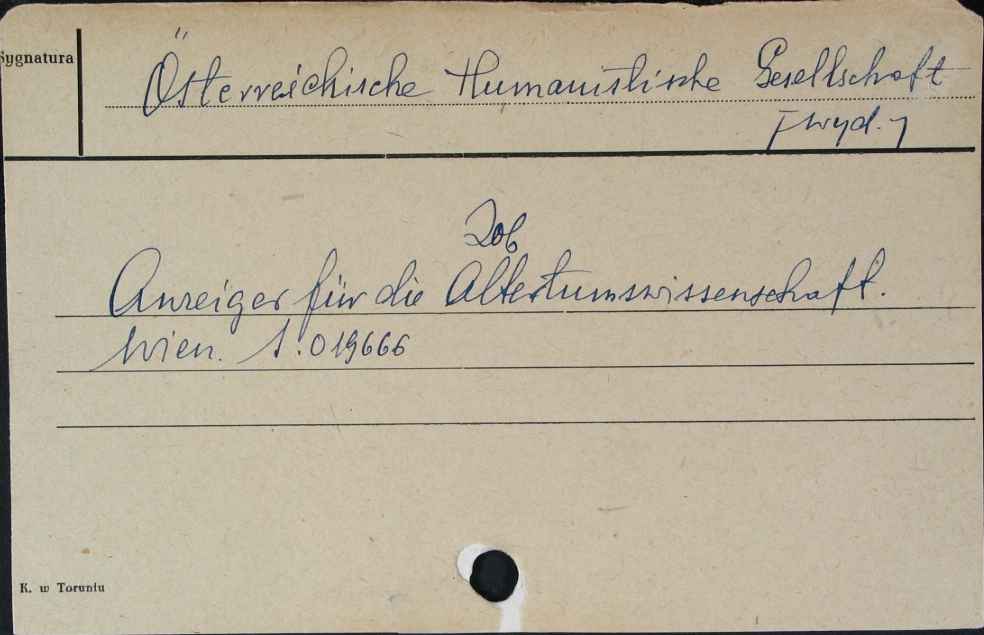 Sygnatura
Österreichische Humanistische Gesellschaft
[wyd.]
Zob
Anzeiger für die Altertumswissenschaft.
Wien. 1.019666
K. w Toruniu